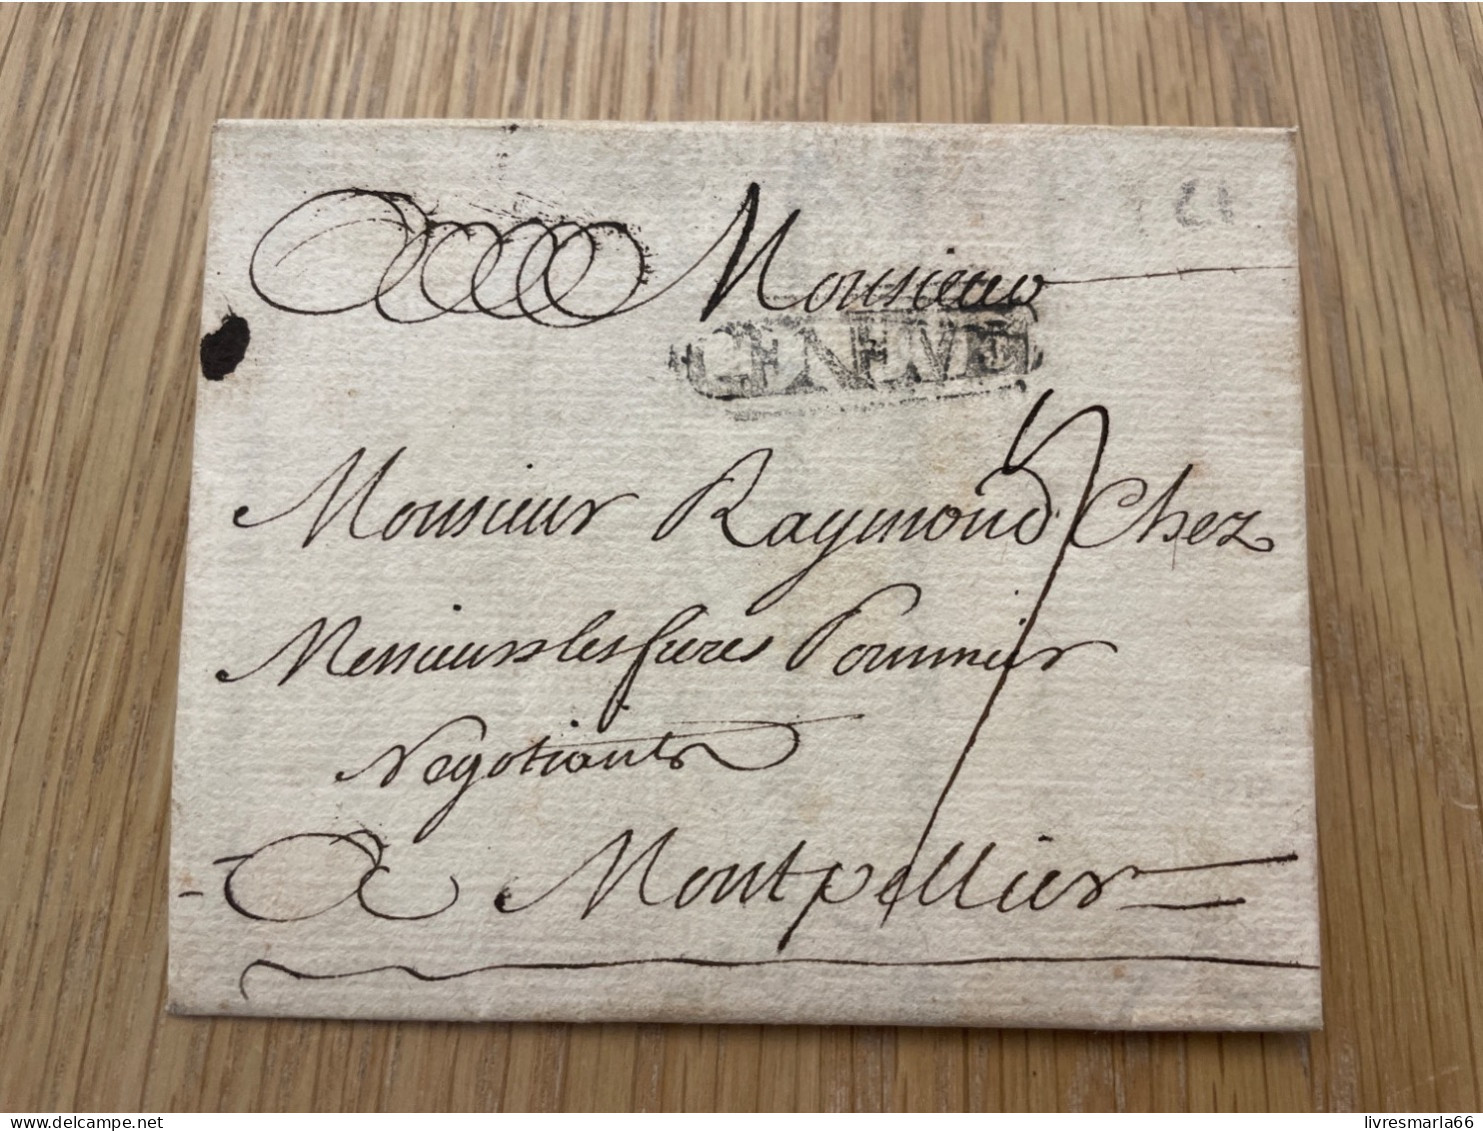 Monsieur
GENEVE
Monsieur Raymond Chez
Messieurs les freres Pommier
Negotiants
A Montpellier
livresmarla66